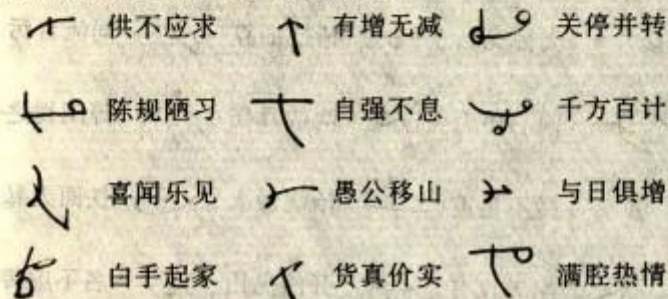 供不应求 有增无减 关停并转
陈规陋习 自强不息 千方百计
喜闻乐见 愚公移山 与日俱增
白手起家 货真价实 满腔热情